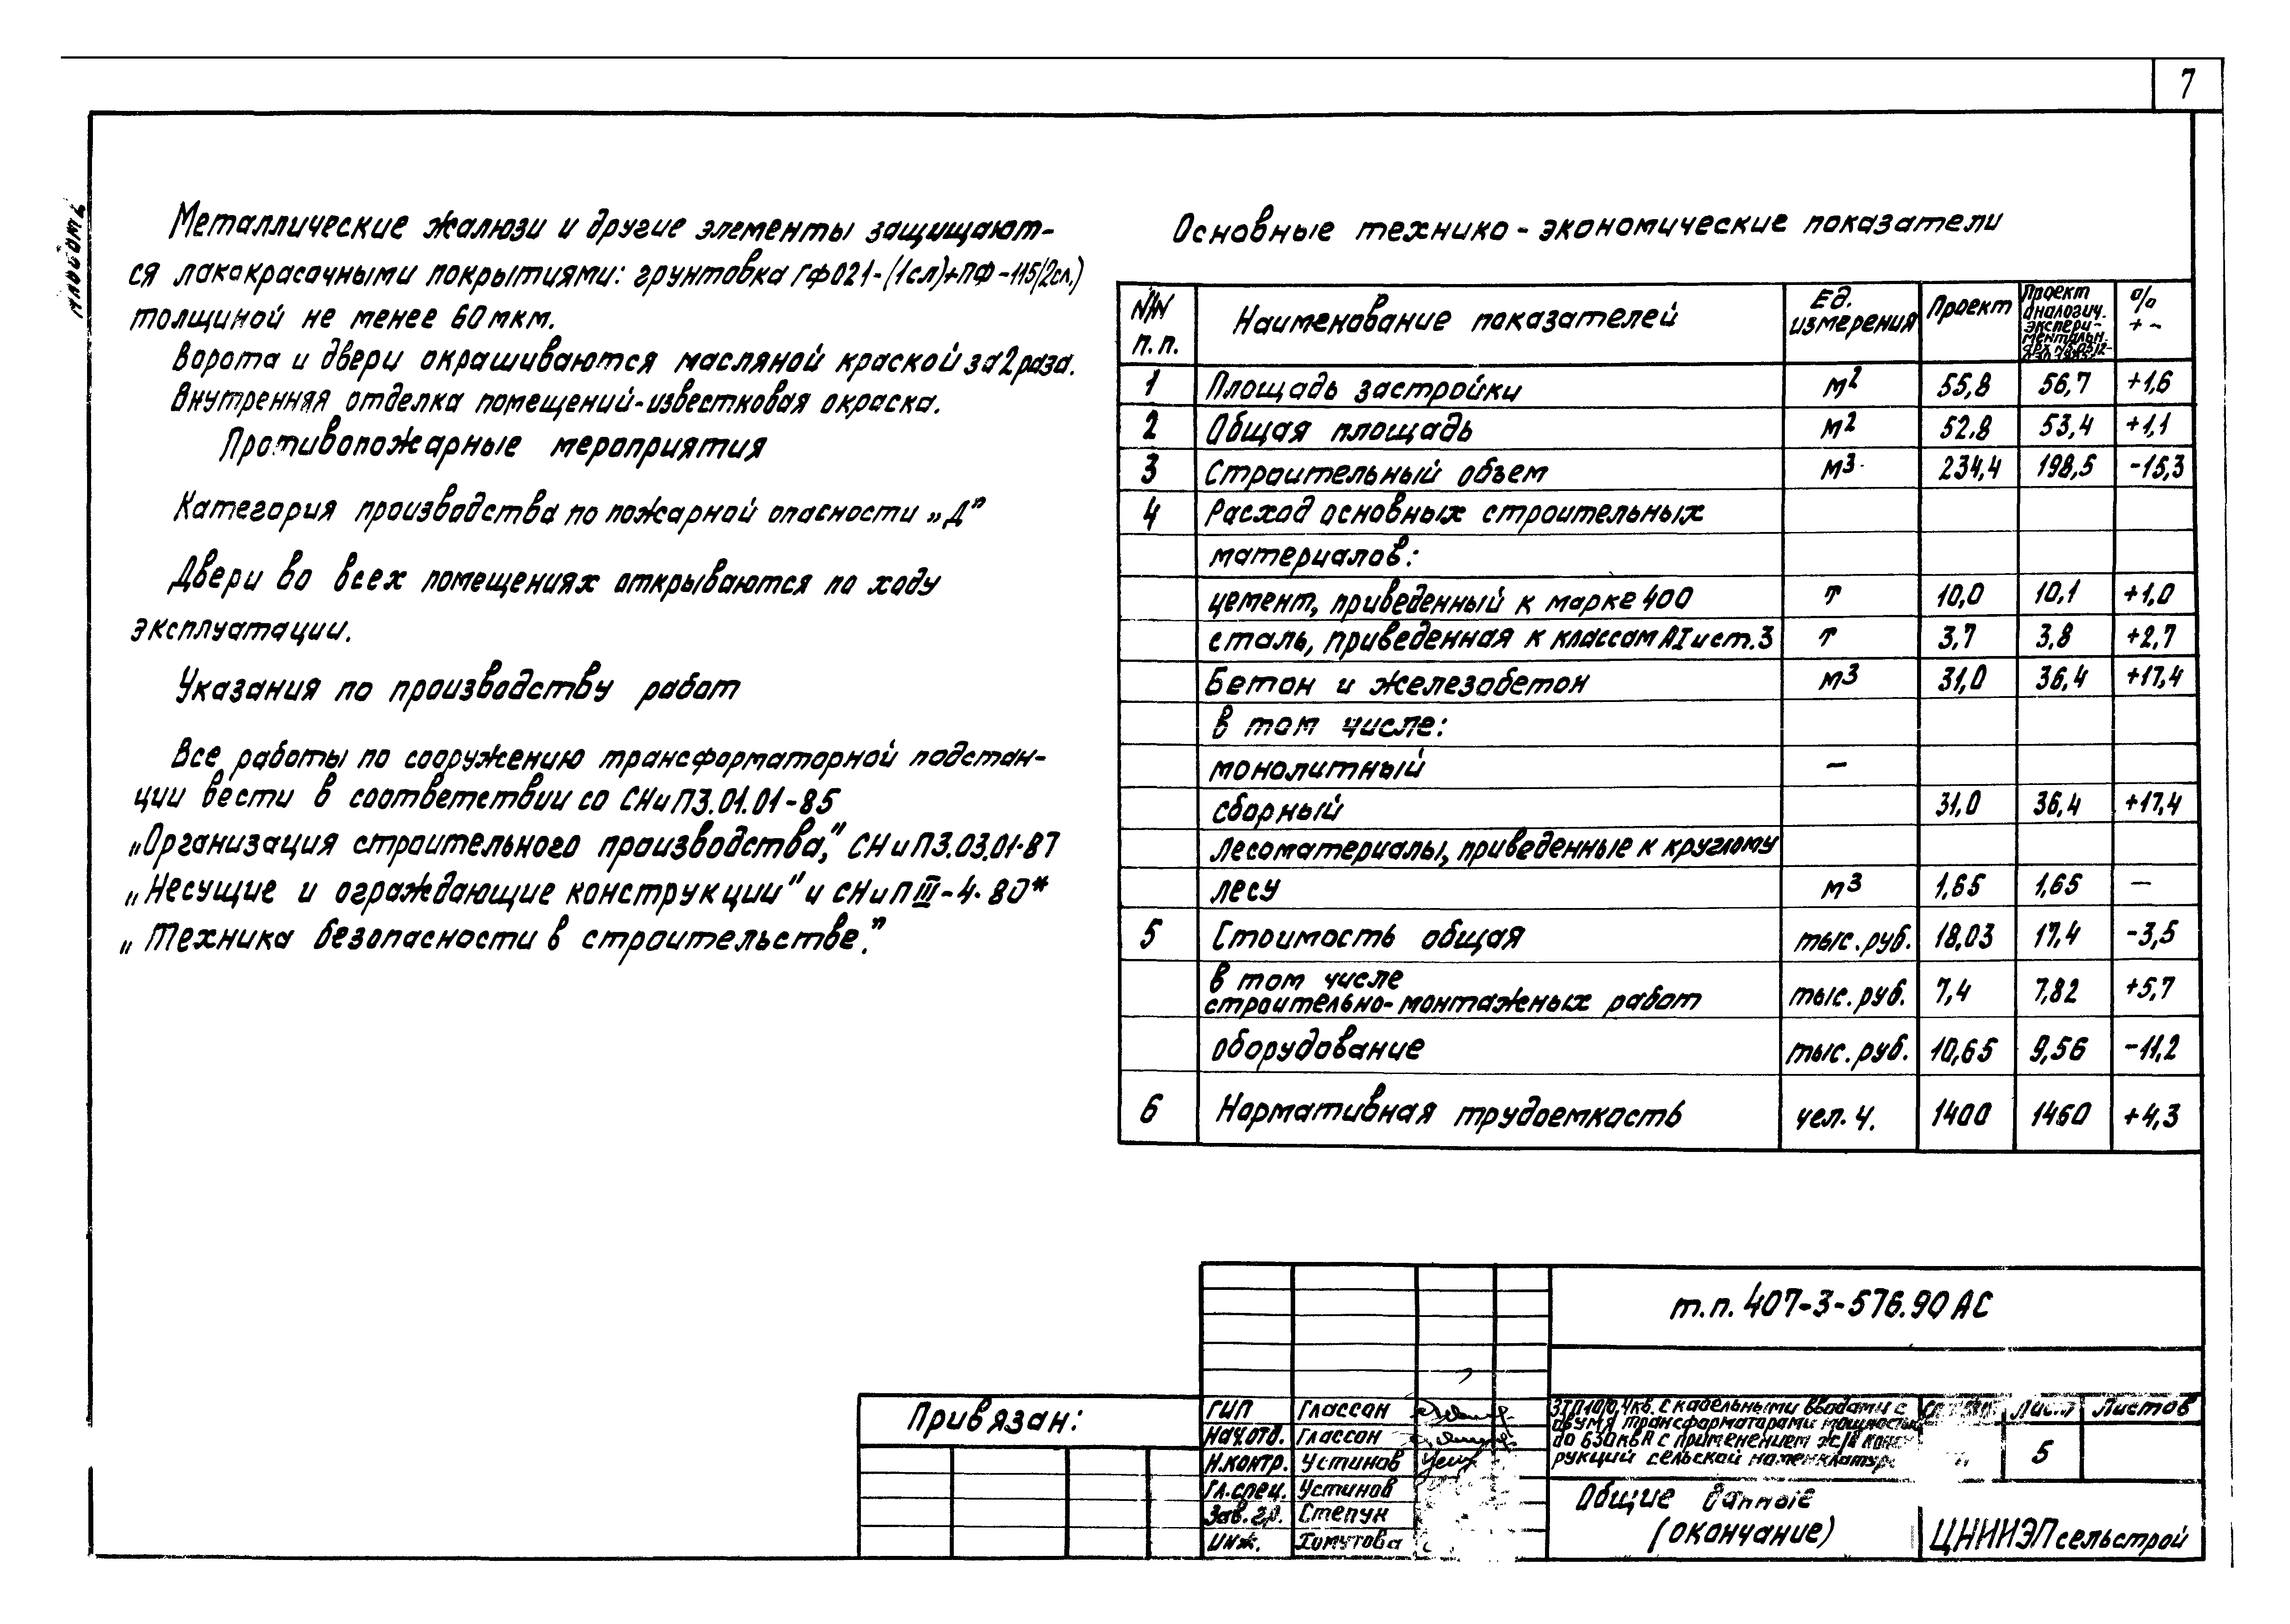 7
Металлические жалюзи и другие элементы защищают-
ся лакокрасочными покрытиями: грунтовка ГФ021-(1сл)+ПФ-115(2сл.)
толщиной не менее 60мкм.
Ворота и двери окрашиваются масляной краской за 2 раза.
Внутренняя отделка помещений-известковая окраска.
Противопожарные мероприятия
Категория производства по пожарной опасности „Д"
Двери во всех помещениях открываются по ходу
эксплуатации.
Указания по производству работ
Все работы по сооружению трансформаторной подстан-
ции вести в соответствии со СНиП3.01.01-85
„Организация строительного производства," СНиП3.03.01-87
„Несущие и ограждающие конструкции" и СНиП III-4-80*
„Техника безопасности в строительстве."
Основные технико-экономические показатели
N/N п.п. Наименование показателей Ед. измерения Проект Проект аналогич. экспери-ментальн. % + -
1 Площадь застройки м2 55,8 56,7 +1,6
2 Общая площадь м2 52.8 53,4 +1,1
3 Строительный объем м3 234,4 198,5 -15,3
4 Расход основных строительных
материалов:
цемент, приведенный к марке 400 т 10,0 10,1 +1,0
сталь, приведенная к классам АI и ст.3 т 3,7 3,8 +2,7
Бетон и железобетон м3 31,0 36,4 +17,4
в том числе:
монолитный —
сборный 31,0 36,4 +17,4
лесоматериалы, приведенные к круглому
лесу м3 1,65 1,65 —
5 Стоимость общая тыс.руб. 18,03 17,4 -3,5
в том числе
строительно-монтажных работ тыс.руб. 7,4 7,82 +5,7
оборудование тыс.руб. 10,65 9,56 -11,2
6 Нормативная трудоемкость чел.ч. 1400 1460 +4,3
т.п. 407-3-576.90 АС
Привязан:
ГИП Глассон
Нач.отд. Глассон
Н.контр. Устинов
Гл.спец. Устинов
Зав.гр. Степук
Инж. Хомутова
ЗТП10/0,4кв. с кабельными вводами с
двумя трансформаторами мощностью
до 630 кВА с применением ж/б конст
рукций сельской номенклатуры
Лист Листов
5
Общие данные
(окончание)
ЦНИИЭПсельстрой